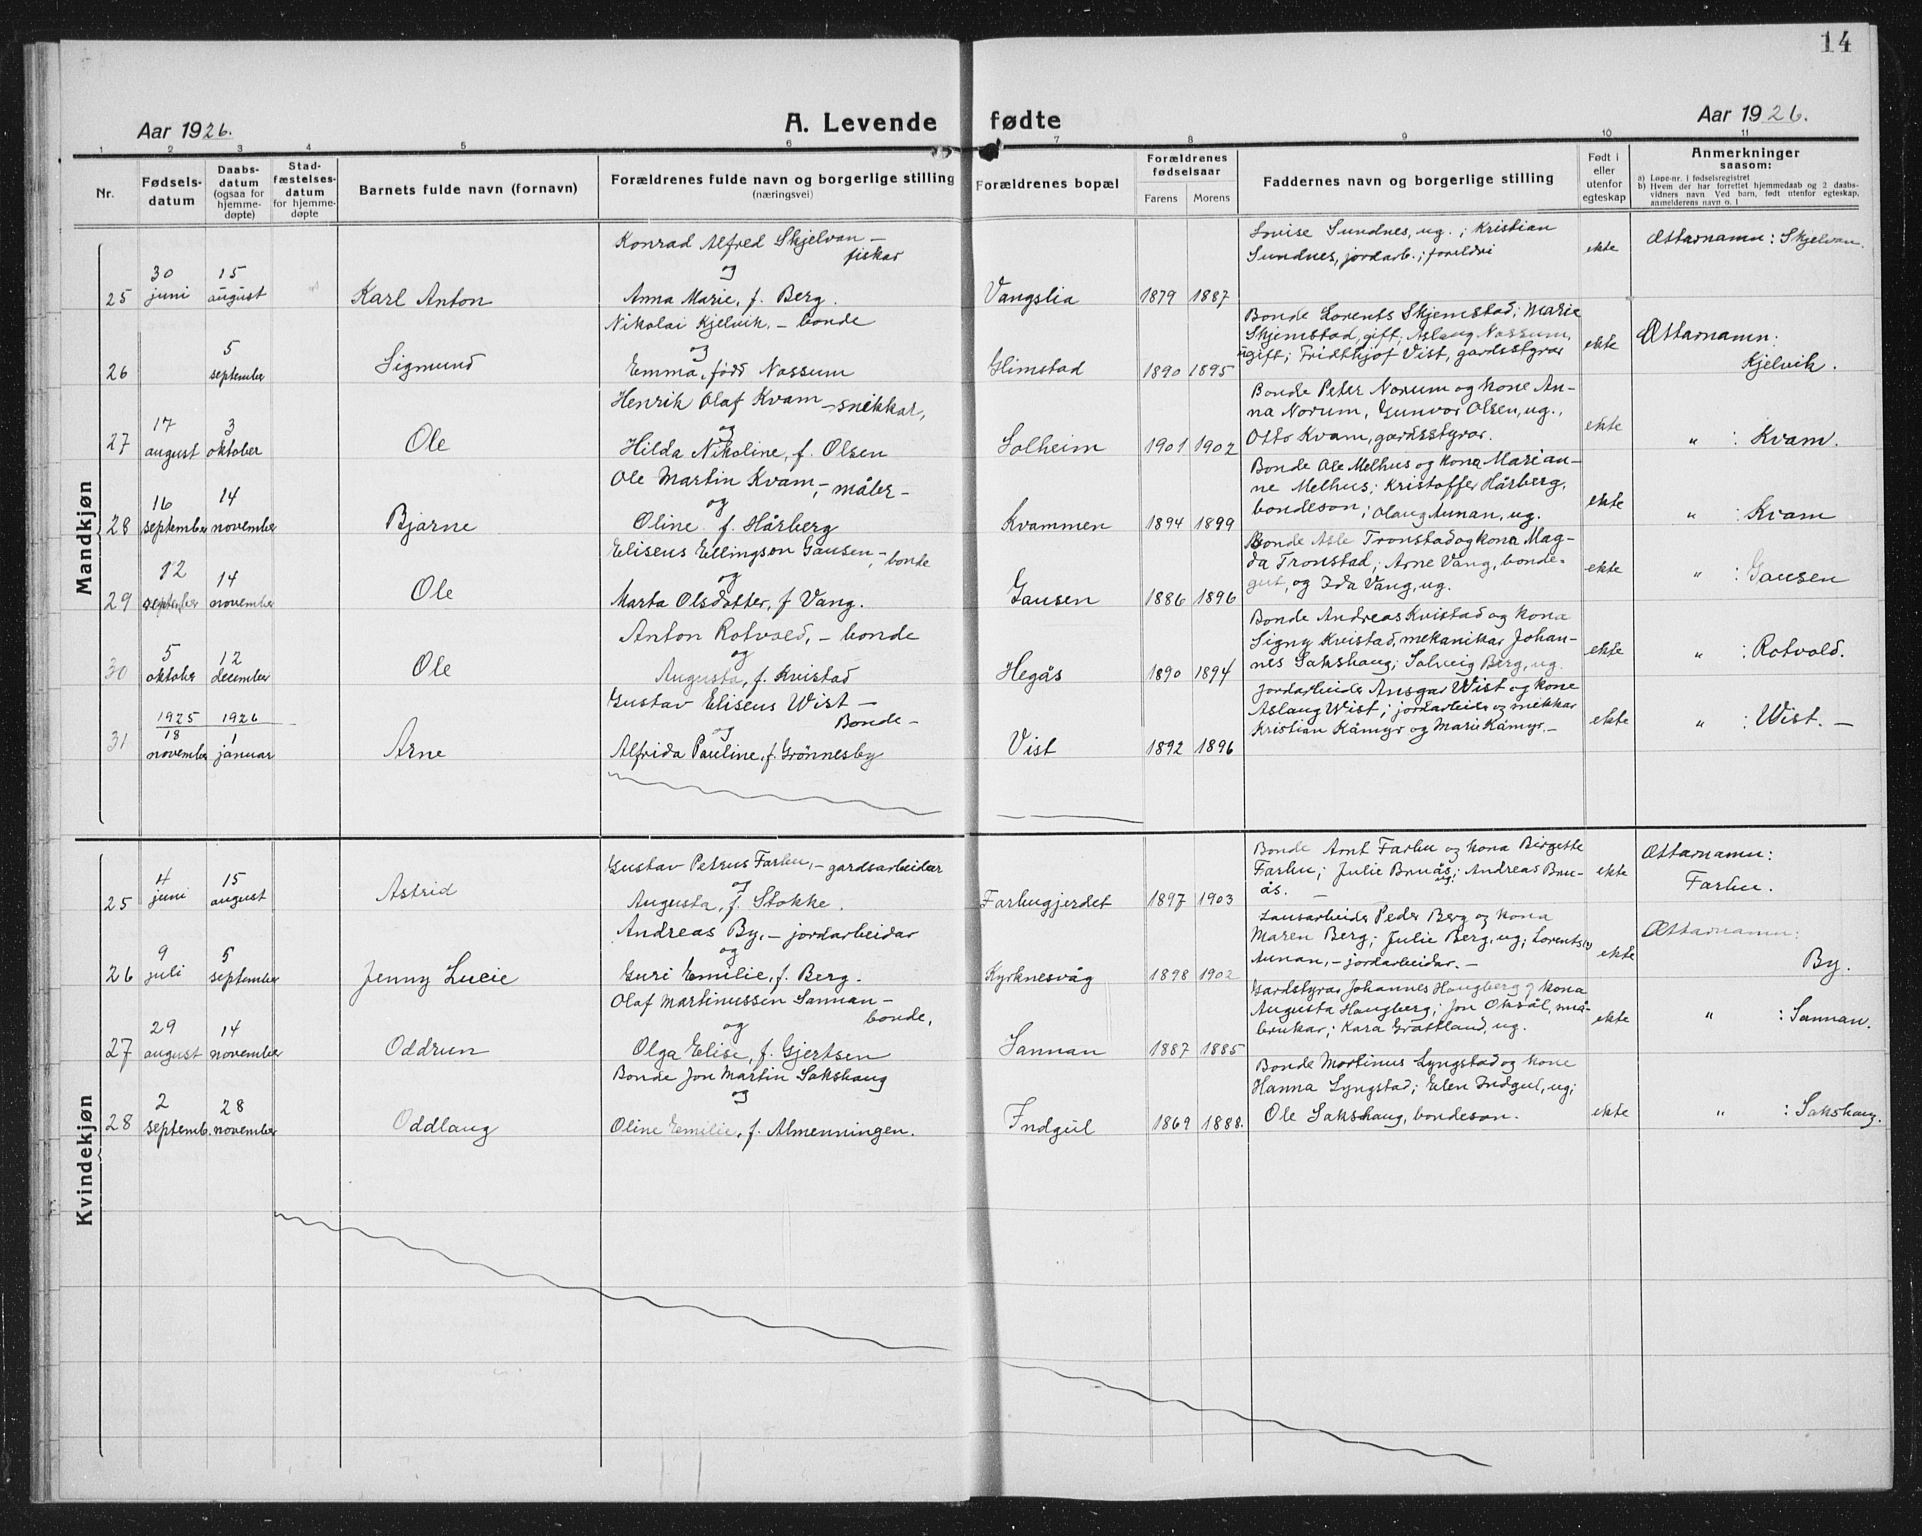 14
Aar 1926.
A. Levende fødte
Aar 1926.
1 2 3 4 5 6 7 8 9 10 11
Nr.
Fødsels-
datum
Daabs-
datum
(ogsaa for
hjemme-
døpte)
Stad-
fæstelses-
datum
for hjemme-
døpte
Barnets fulde navn (fornavn)
Forældrenes fulde navn og borgerlige stilling
(næringsvei)
Forældrenes bopæl
Forældrenes
fødselsaar
Farens Morens
Faddernes navn og borgerlige stilling
Født i
eller
utenfor
egteskap
Anmerkninger
saasom:
a) Løpe-nr. i fødselsregistret
b) Hvem der har forrettet hjemmedaab og 2 daabs-
vidners navn Ved barn, født utenfor egteskap,
anmelderens navn o. l
Mandkjøn
25
30
juni
15
august
Karl Anton
Konrad Alfred Skjelvan —
fiskar
og
Anna Marie, f. Berg.
Vangslia
1879 1887
Lovise Sundnes, ug.; Kristian
Sundnes, jordarb.; foreldri
ekte
Ættarnamn: Skjelvan.
26
5
september
Sigmund
Nikolai Kjelvik, — bonde
og
Emma, född Nossum
Glimstad
1890 1895
Bonde Lorents Skjemstad; Marie
Skjemstad, gift; Aslaug Nossum,
ugift; Fridthjof Vist, gardsstyrar
ekte
Ættarnamn:
Kjelvik.
27
17
august
3
oktober
Ole
Henrik Olaf Kvam — snikkar,
og
Hilda Nikoline, f. Olsen
Solheim
1901 1902
Bonde Peter Norum og kone An-
na Norum, Gunvor Olsen, ug.,
Otto Kvam, gardsstyrar.
ekte
" : Kvam.
28
16
september
14
november
Bjarne
Ole Martin Kvam, — måler —
og
Oline f. Hårberg
Kvammen
1894 1899
Bonde Ole Melhus og kona Marian-
ne Melhus; Kristoffer Hårberg,
bondeson; Olaug Aunan, ug.
ekte
" : Kvam
29
12
september
14
november
Ole
Eliseus Ellingson Gausen —, bonde
og
Marta Olsdotter, f Vang.
Gausen
1886 1896
Bonde Asle Tronstad og kona Mag-
da Tronstad; Arne Vang, bonde-
gut, og Ida Vang, ug.
ekte
" : Gausen
30
5
oktober
12
december
Ole
Anton Rotvold, — bonde
og
Augusta, f. Kvistad
Hegås
1890 1894
Bonde Andreas Kvistad og kona
Signy Kvistad, mekanikar Johan-
nes Sakshaug; Solveig Berg, ug.
ekte
" : Rotvold.
31
1925
18
november
1926
1
januar
Arne
Gustav Eliseus Wist —
Bonde —
og
Alfrida Pauline, f. Grönnesby
Vist
1892 1896
Jordarbeider Ansgar Wist og kone
Aslaug Wist; jordarbeider og mekkar
Kristian Kåmyr og Marie Kåmyr. —
ekte
" : Wist. —
Kvindekjøn
25
4
juni
15
august
Astrid
Gustav Petrus Farbu, — gardsarbeidar
og
Augusta, f. Stokke.
Farbugjerdet
1897 1903
Bonde Arnt Farbu og kona Birgitte
Farbu; Julie Bruås, ug; Andreas Bru-
ås. —
ekte
Ættarnamn:
Farbu.
26
9
juli
5
september
Jenny Lucie
Andreas By, — jordarbeidar
og
Guri Emilie, f. Berg.
Kyrknesvåg
1898 1902
Lausarbeider Peder Berg og kona
Maren Berg; Julie Berg, ug; Lorents
Aunan, — jordarbeidar. —
ekte
Ættarnamn:
By.
27
29
august
14
november
Oddrun
Olaf Martinussen Sannan —
bonde,
og
Olga Elise, f. Gjertsen
Sannan
1887 1885
Gardstyrar Johannes Haugberg og kona
Augusta Haugberg; Jon Oksål, må-
brukar; Kara Gråttland, ug.
ekte
" : Sannan.
28
2
septemb.
28
november
Oddlaug
Bonde Jon Martin Sakshaug
og
Oline Emilie, f. Almenningen.
Indgul
1869 1888.
Bonde Martinus Lyngstad og kone
Hanna Lyngstad; Elen Indgul, ug;
Ole Sakshaug, bondeson.
ekte
" : Sakshaug.